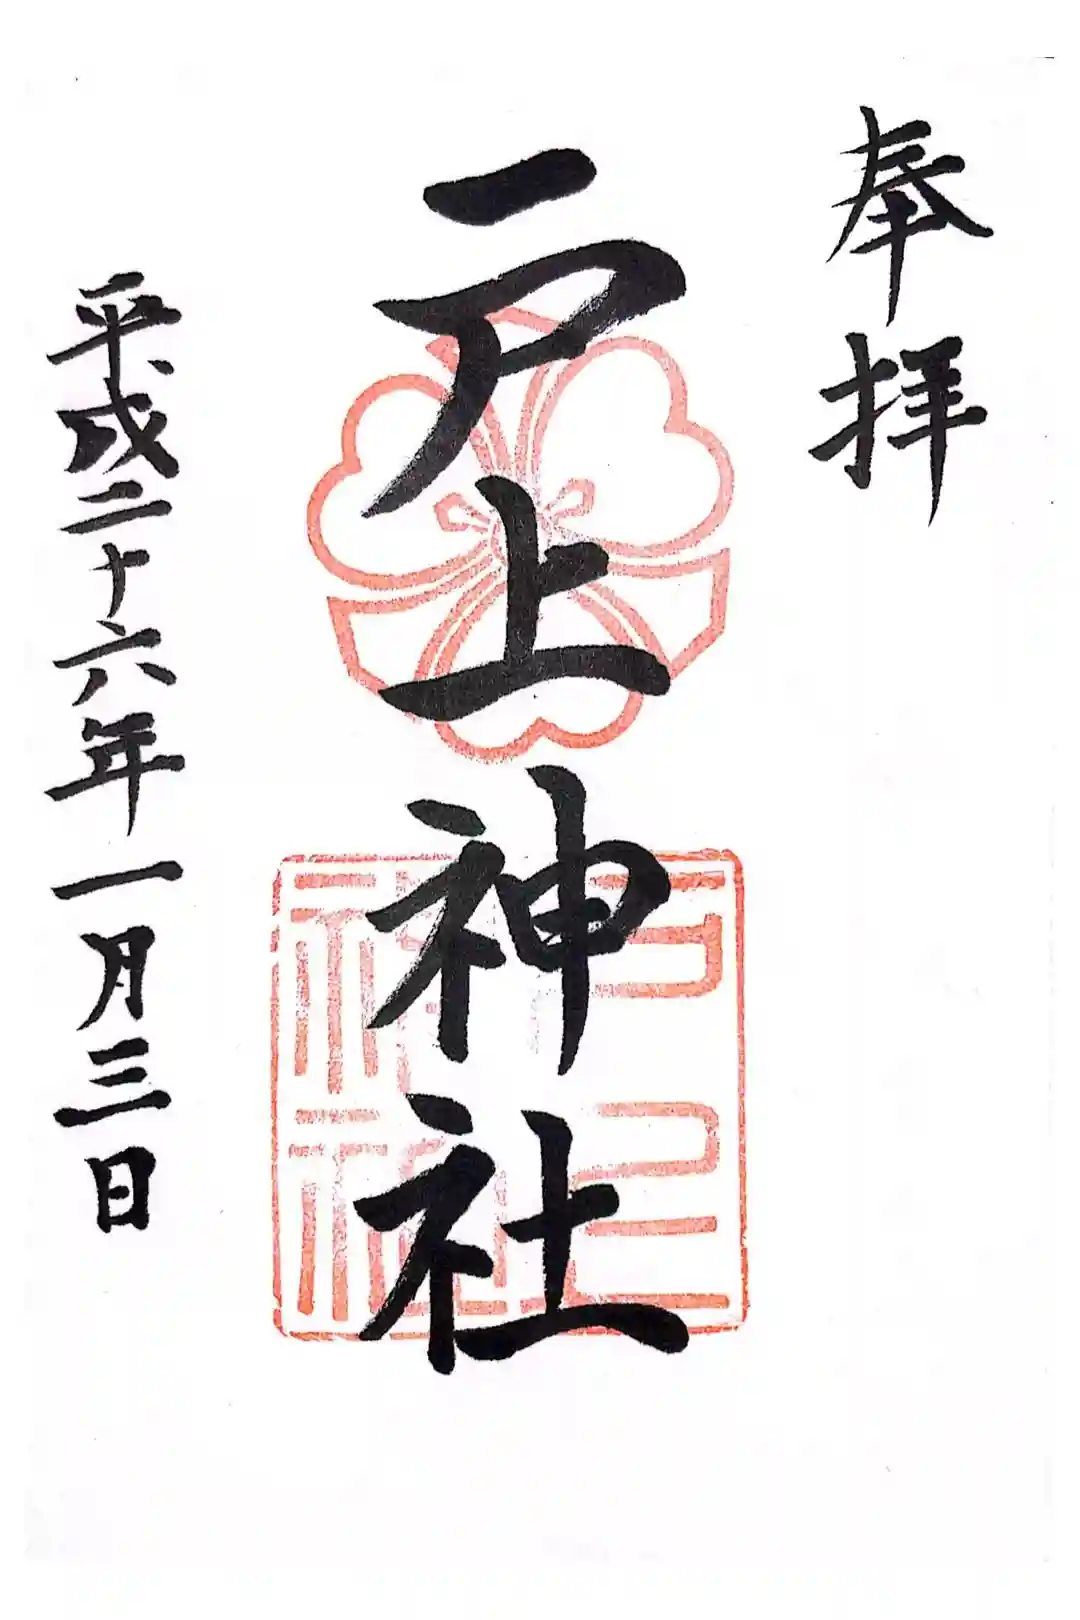 奉拝
戸上神社
平成二十六年一月三日
戸上神社